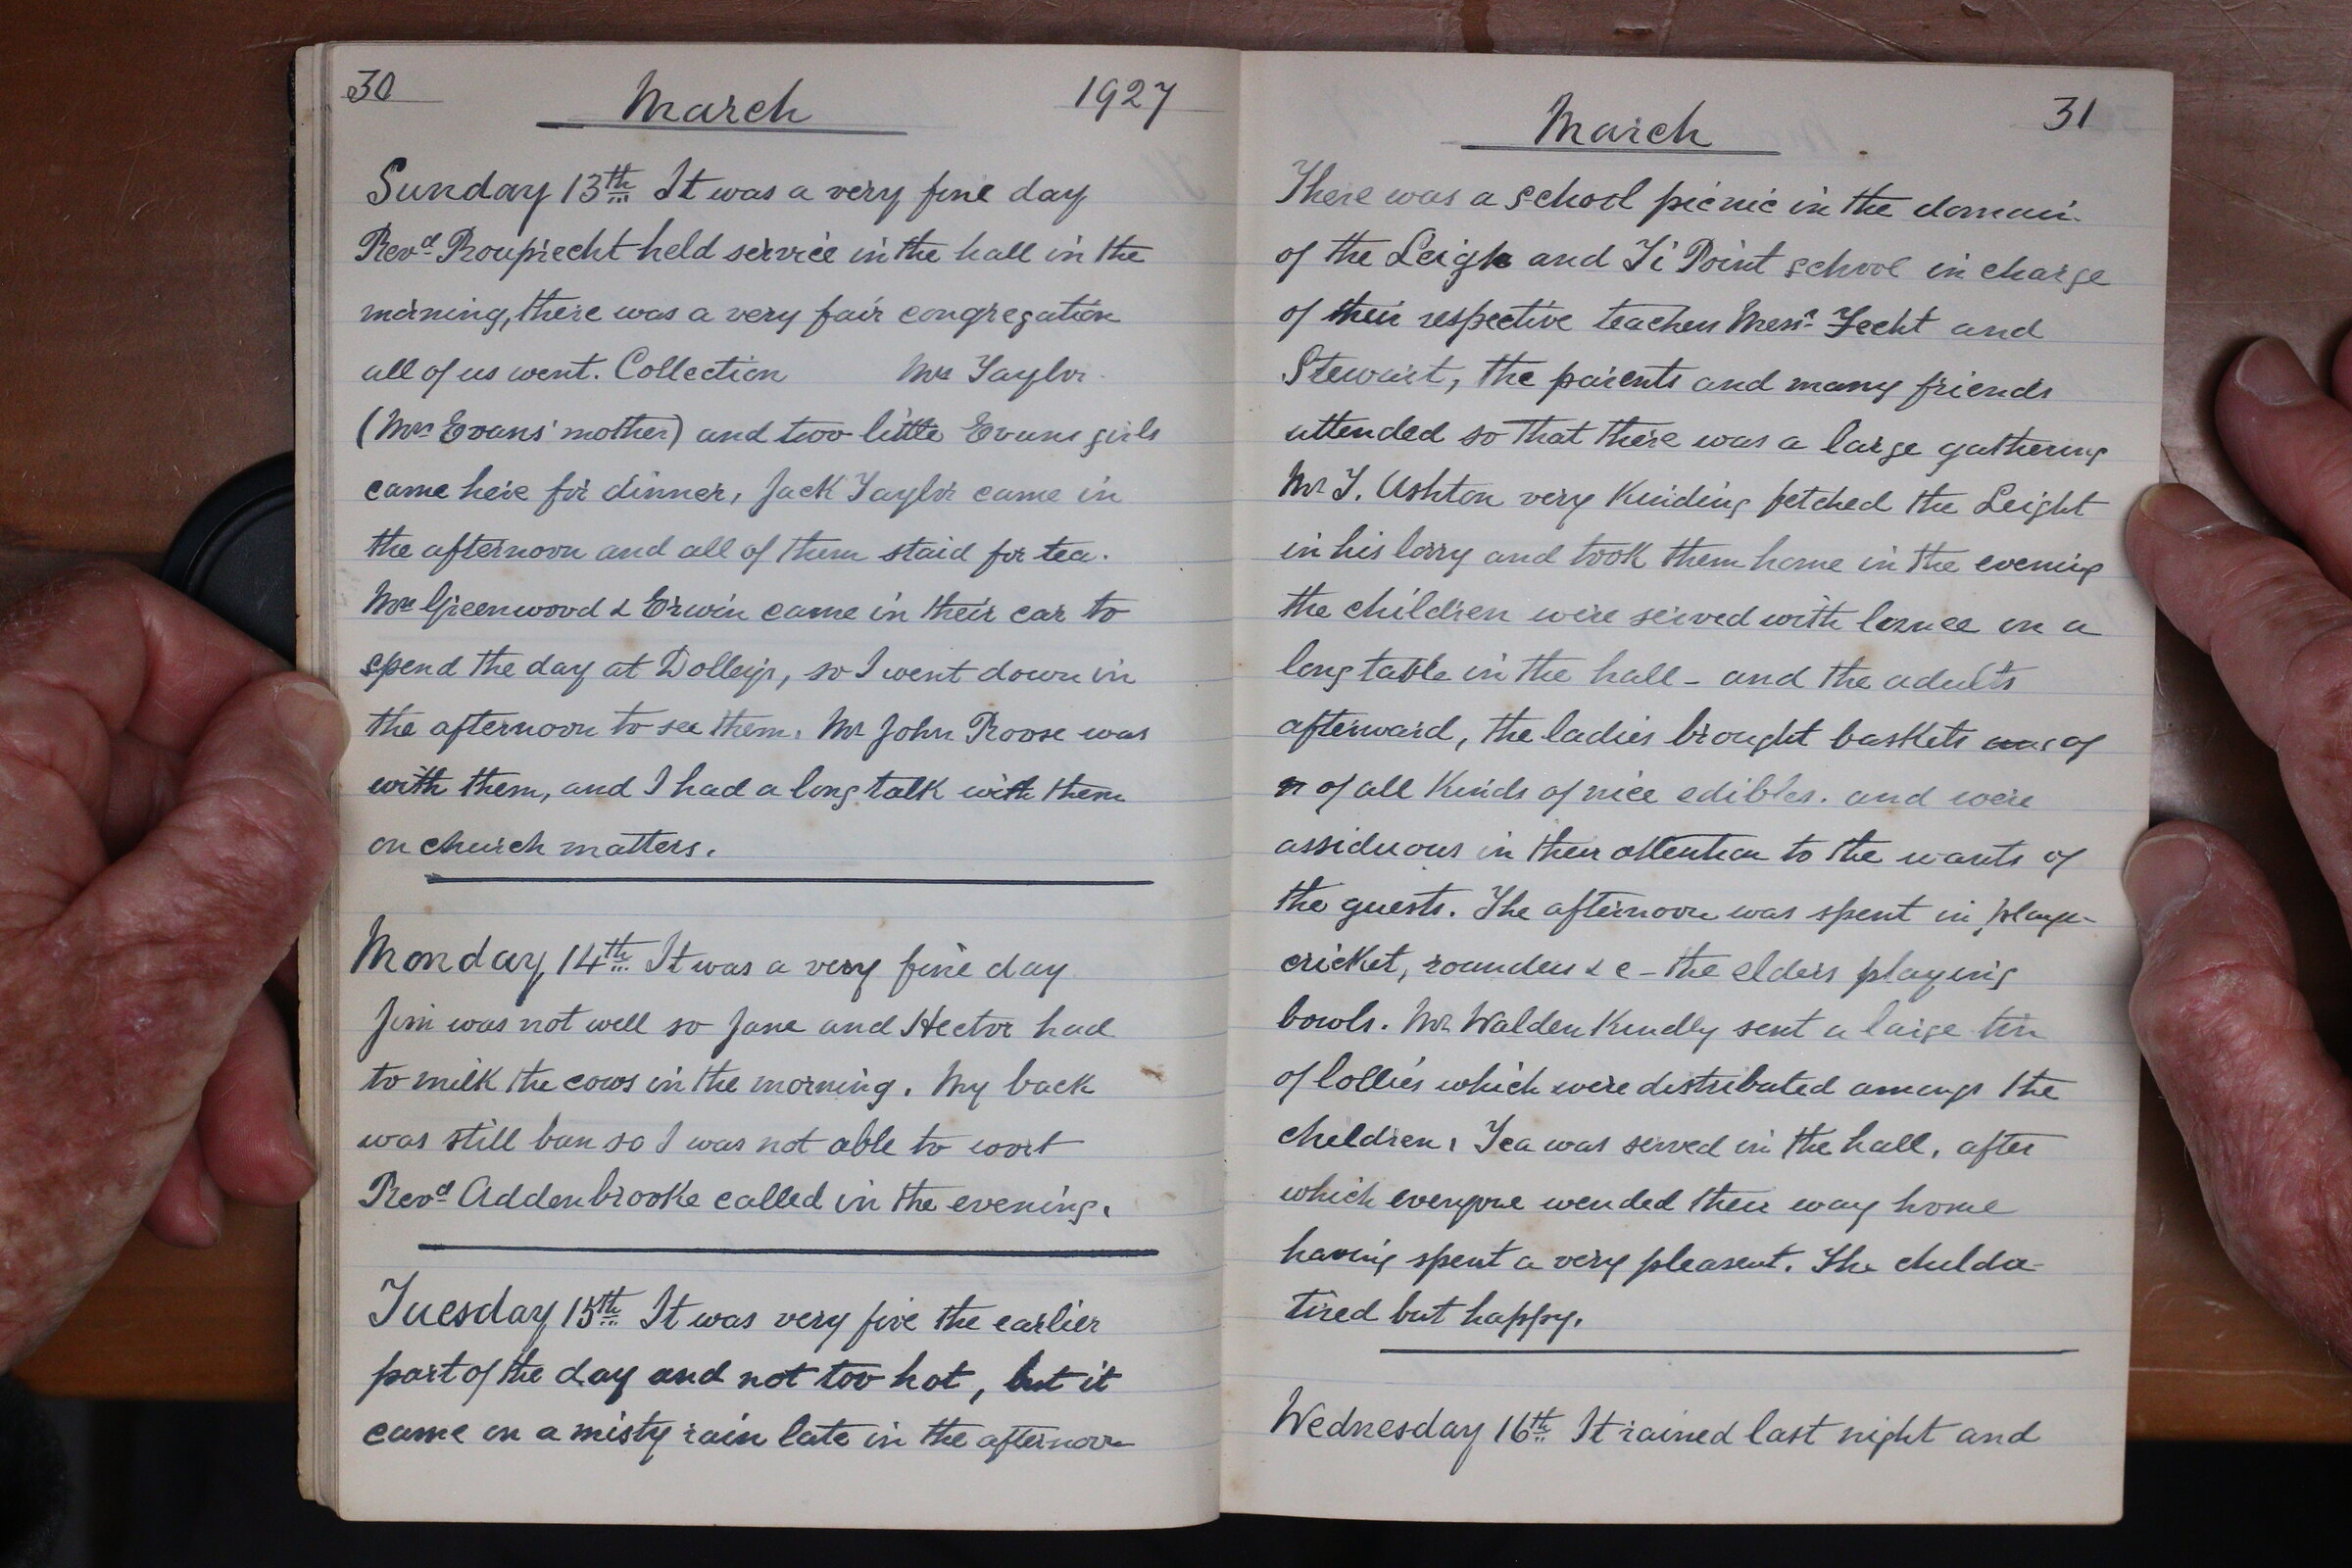 30 March 1927
Sunday 13th It was a very fine day
Revd Prouprecht held service in the hall in the
morning, there was a very fair congregation
all of us went. Collection Mrs Taylor
(Mrs Evans' mother) and two little Evans girls
came here for dinner, Jack Taylor came in
the afternoon and all of them staid for tea.
Mrs Greenwood & Erwin came in their car to
spend the day at Dolleys, so I went down in
the afternoon to see them. Mr John Roose was
with them, and I had a long talk with them
on church matters.
Monday 14th It was a very fine day
Jim was not well so Jane and Hector had
to milk the cows in the morning. My back
was still ban so I was not able to
Revd Addenbrooke called in the evening.
Tuesday 15th It was very fine the earlier
part of the day and not too hot, but it
came on a misty rain late in the afternoon
March 31
There was a school picnic in the domain
of the Leigh and Ti Point school in charge
of their respective teachers Messrs Fecht and
Stewart, the parents and many friends
attended so that there was a large gathering
Mr T. Ashton very fetched the Leight
in his lorry and took them home in the evening
the children were served with on a
long table in the hall - and the adults
afterward, the ladies brought baskets of
of all kinds of nice edibles. and were
assiduous in their attention to the wants of
the guests. The afternoon was spent in
cricket, rounders & c - the elders playing
bowls. Mr Walden kindly sent a large tin
of lollies which were distributed amongs the
children. Tea was served in the hall, after
which everyone wended their way home
having spent a very pleasent. The
tired but happy.
Wednesday 16th It rained last night and